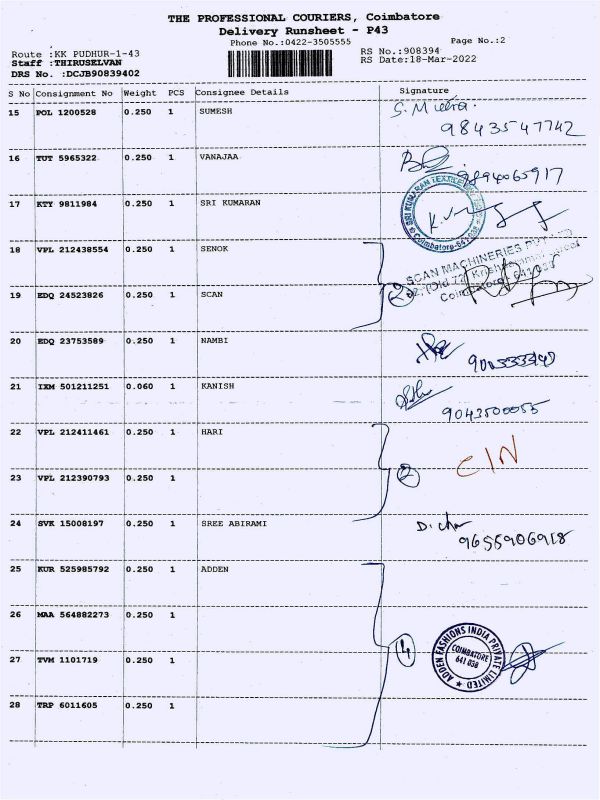 THE PROFESSIONAL COURIERS, Coimbatore
Delivery Runsheet - P43
Phone No.:0422-3505555
Page No.:2
Route :KK PUDHUR-1-43
RS No.:908394
Staff :THIRUSELVAN
RS Date:18-Mar-2022
DRS No. :DCJB90839402
S No Consignment No Weight PCS Consignee Details Signature
15 POL 1200528 0.250 1 SUMESH
9843547742
16 TUT 5965322 0.250 1 VANAJAA
9894065917
17 KTY 9811984 0.250 1 SRI KUMARAN
SRI KUMARAN TEXTILE
Coimbatore-641 038
18 VPL 212438554 0.250 1 SENOK
SCAN MACHINERIES
19 EDQ 24523826 0.250 1 SCAN
2
Coimbatore
20 EDQ 23753589 0.250 1 NAMBI
21 IXM 501211251 0.060 1 KANISH
9043500055
22 VPL 212411461 0.250 1 HARI
CIN
23 VPL 212390793 0.250 1
2
24 SVK 15008197 0.250 1 SREE ABIRAMI
9655906918
25 KUR 525985792 0.250 1 ADDEN
26 MAA 564882273 0.250 1
4
ADDEN FASHIONS INDIA PRIVATE LIMITED
COIMBATORE
641 038
27 TVM 1101719 0.250 1
28 TRP 6011605 0.250 1